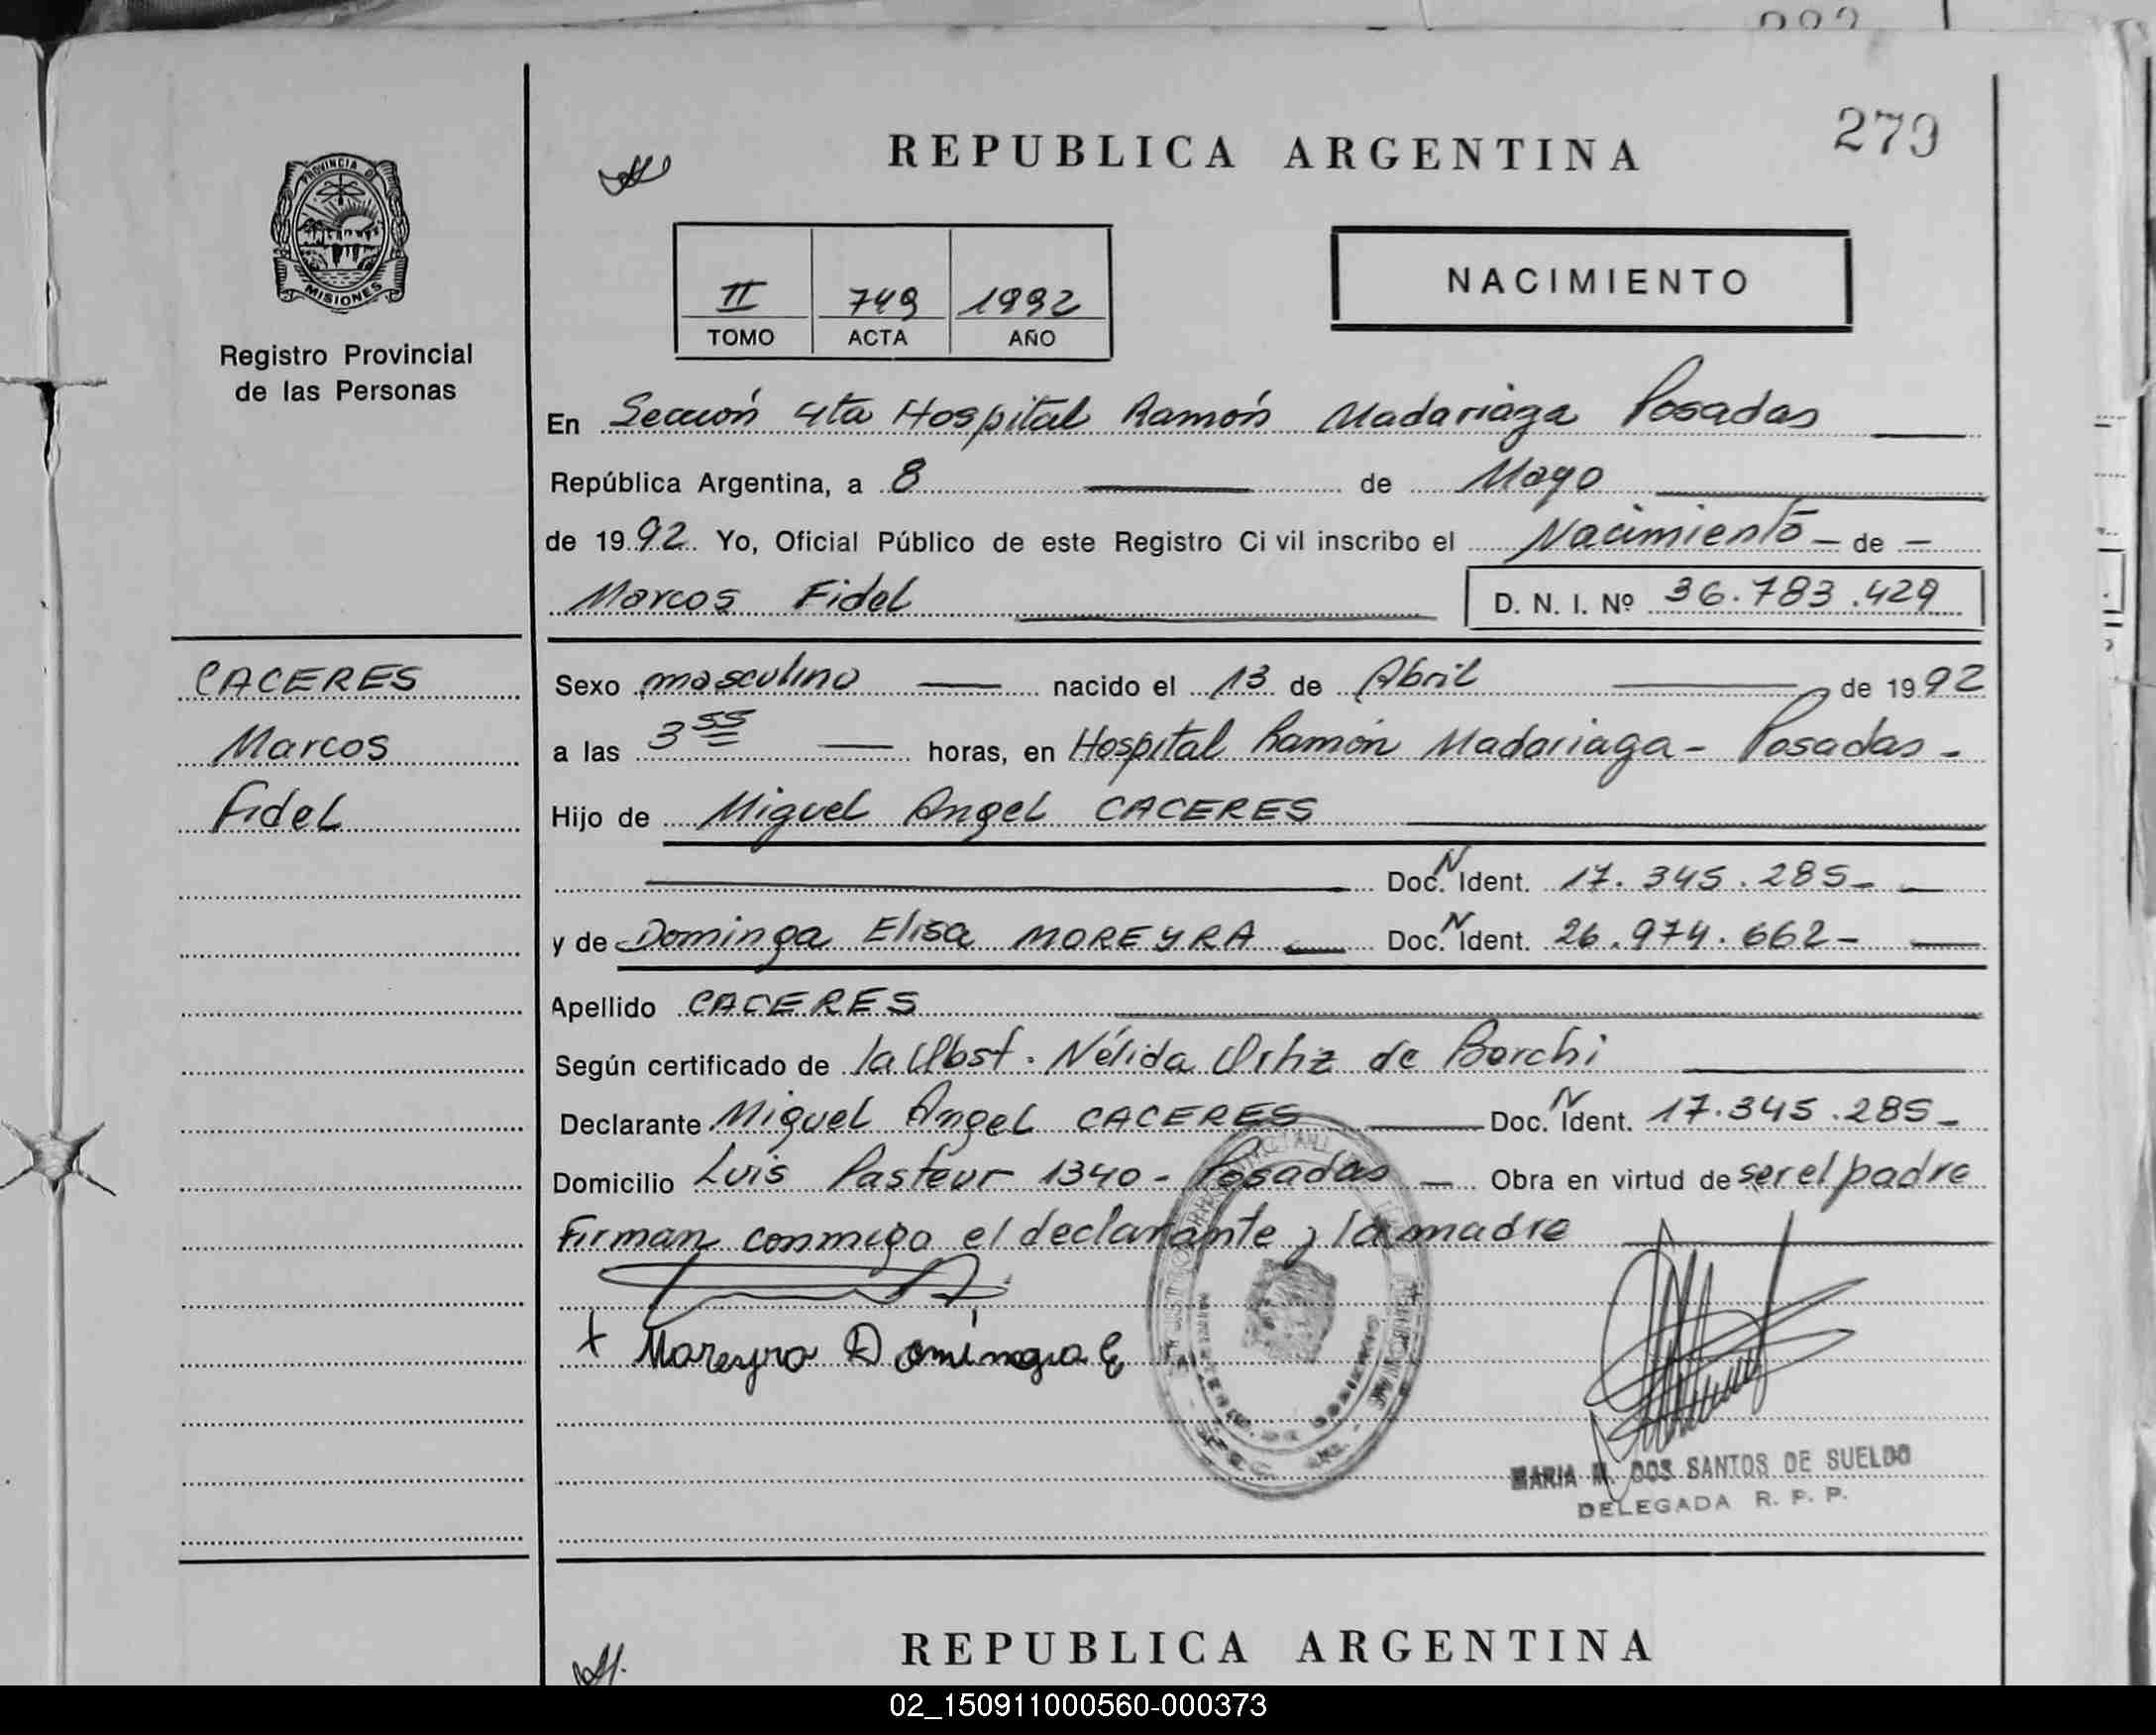 279
REPUBLICA ARGENTINA
PROVINCIA D
MISIONES
Registro Provincial
de las Personas
II 749 1992
TOMO ACTA AÑO
NACIMIENTO
En Sección 4ta Hospital Ramón Madariaga Posadas
República Argentina, a 8 de Mayo
de 1992 Yo, Oficial Público de este Registro Civil inscribo el Nacimiento de
Marcos Fidel D. N. I. Nº 36.783.429
CACERES
Marcos
Fidel
Sexo masculino nacido el 13 de Abril de 1992
a las 3 55 horas, en Hospital Ramón Madariaga - Posadas -
Hijo de Miguel Angel CACERES
Doc. N Ident. 17.345.285-
y de Dominga Elisa MOREYRA Doc. N Ident. 26.974.662-
Apellido CACERES
Según certificado de la Obst. Nélida Ortiz de Borchi
Declarante Miguel Angel CACERES Doc. N Ident. 17.345.285-
Domicilio Luis Pasteur 1340 - Posadas - Obra en virtud de ser el padre
Firman conmigo el declarante y la madre
x Moreyra Dominga E
MARIA M. DOS SANTOS DE SUELDO
DELEGADA R. P. P.
REPUBLICA ARGENTINA
02_150911000560-000373